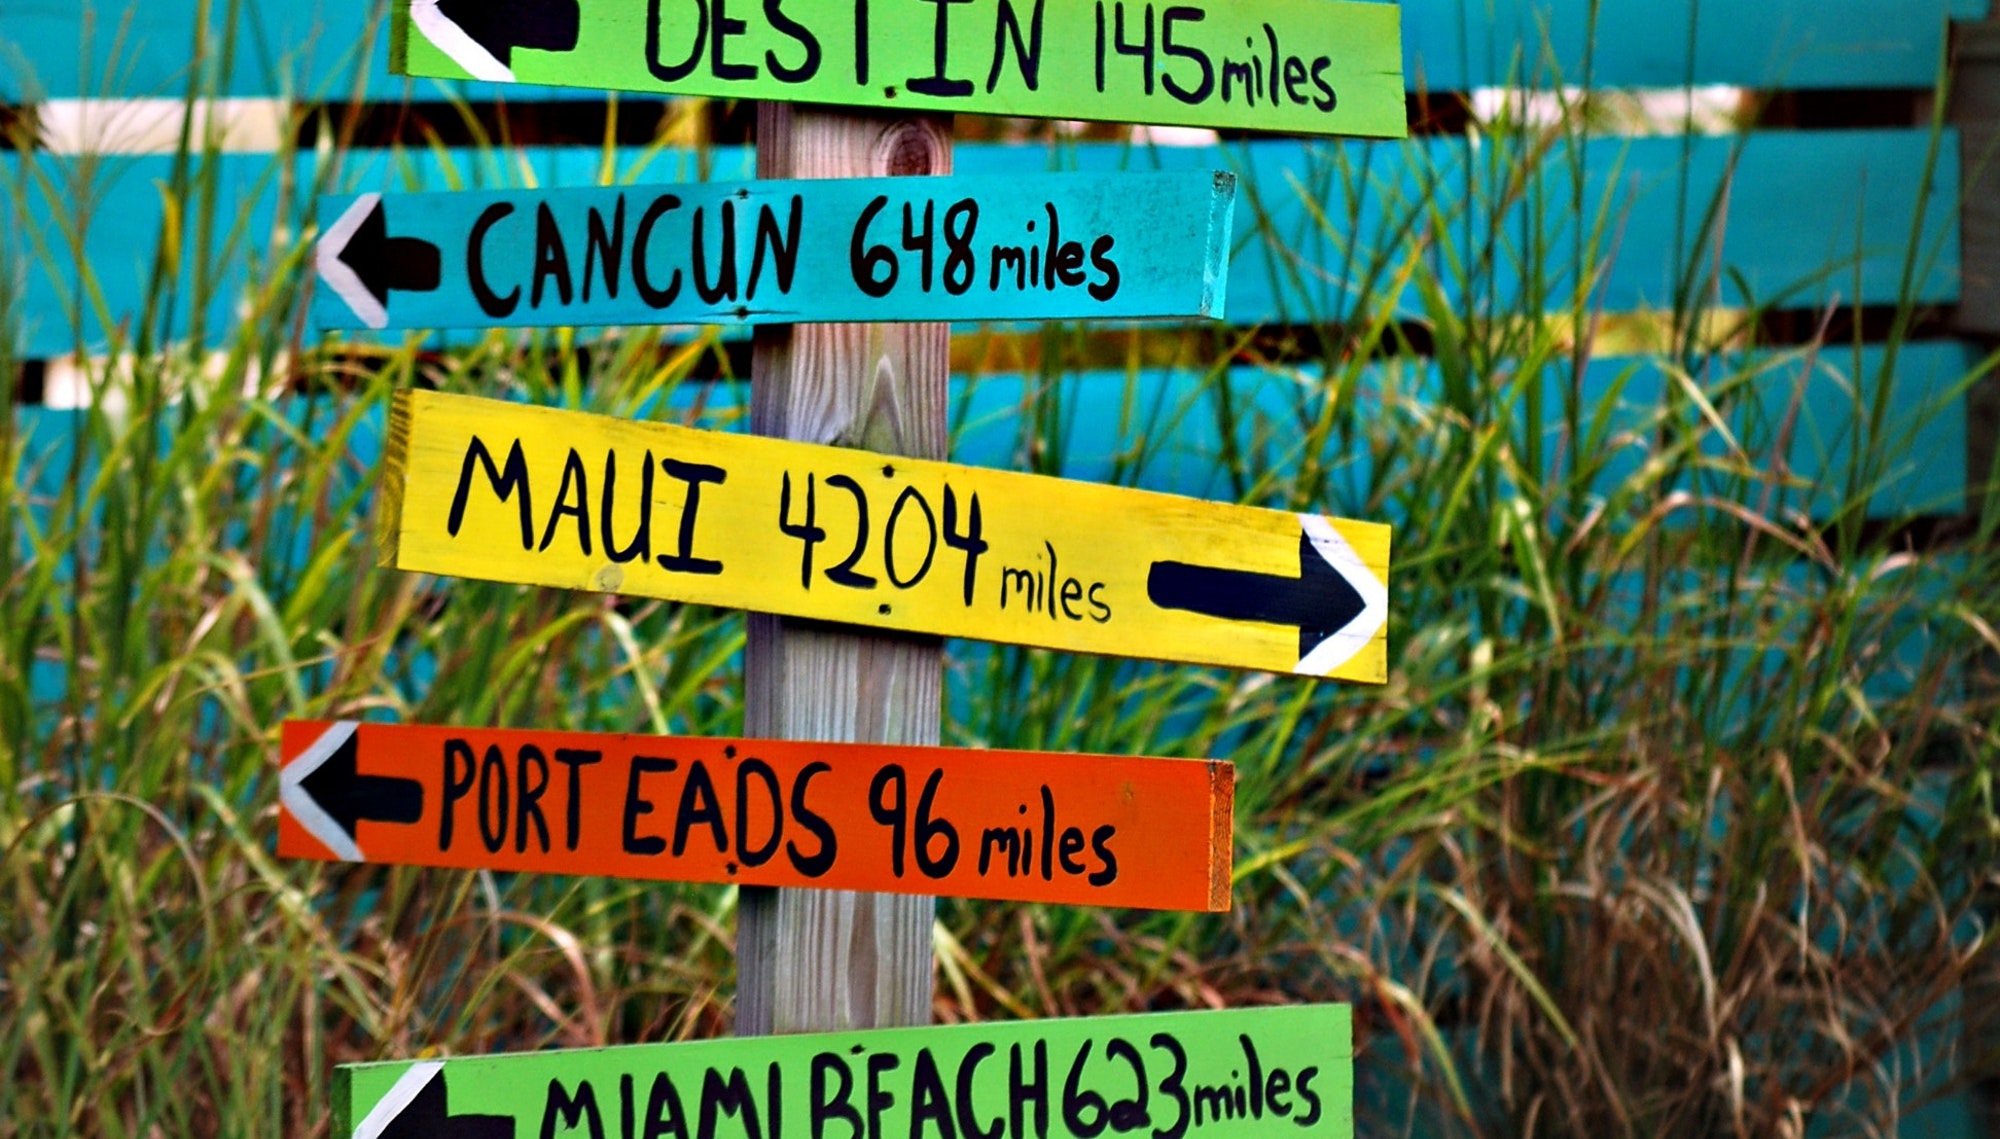 DESTIN 145 miles
CANCUN 648 miles
MAUI 4204 miles
PORT EADS 96 miles
MIAMI BEACH 623 miles